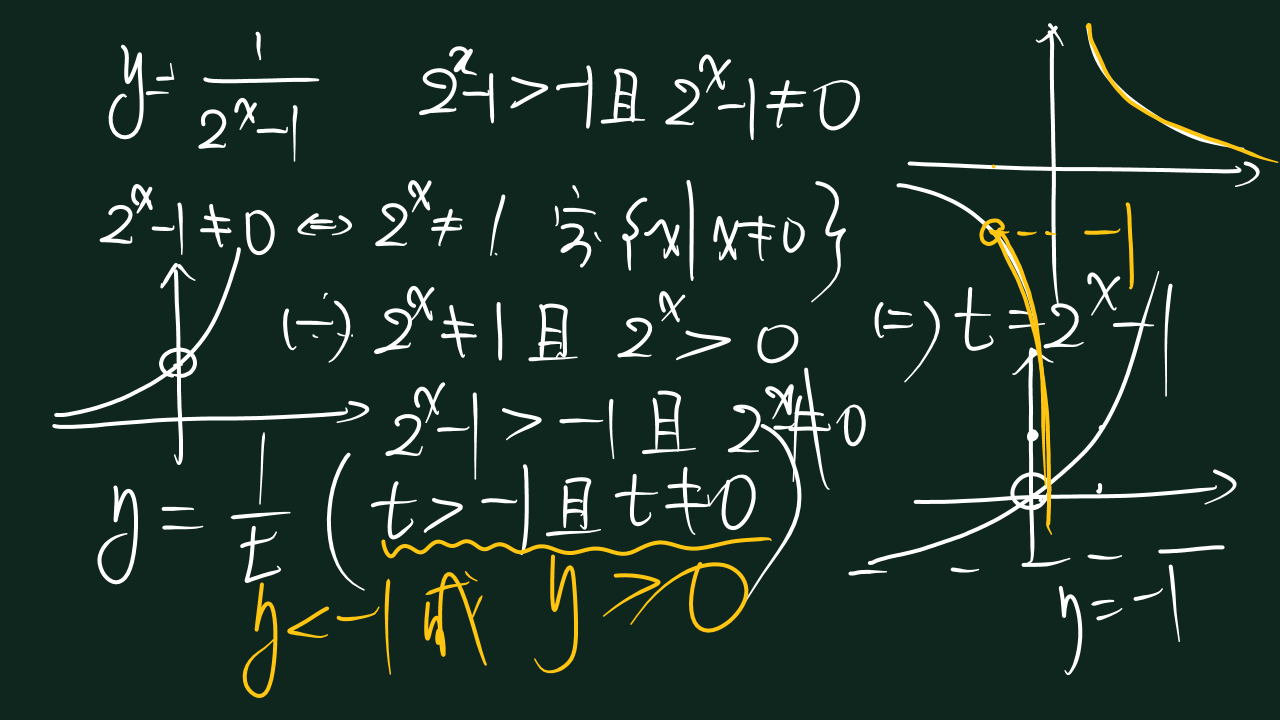 y = 1/(2^x-1) 2^x-1>-1且2^x-1≠0
2^x-1≠0 ⇔ 2^x≠1 {x|x≠0}
(一) 2^x≠1且 2^x>0 (=) t=2^x-1
2^x-1>-1且2^x≠0
y=1/t (t>-1且t≠0)
y<-1或 y>0
-1
y=-1